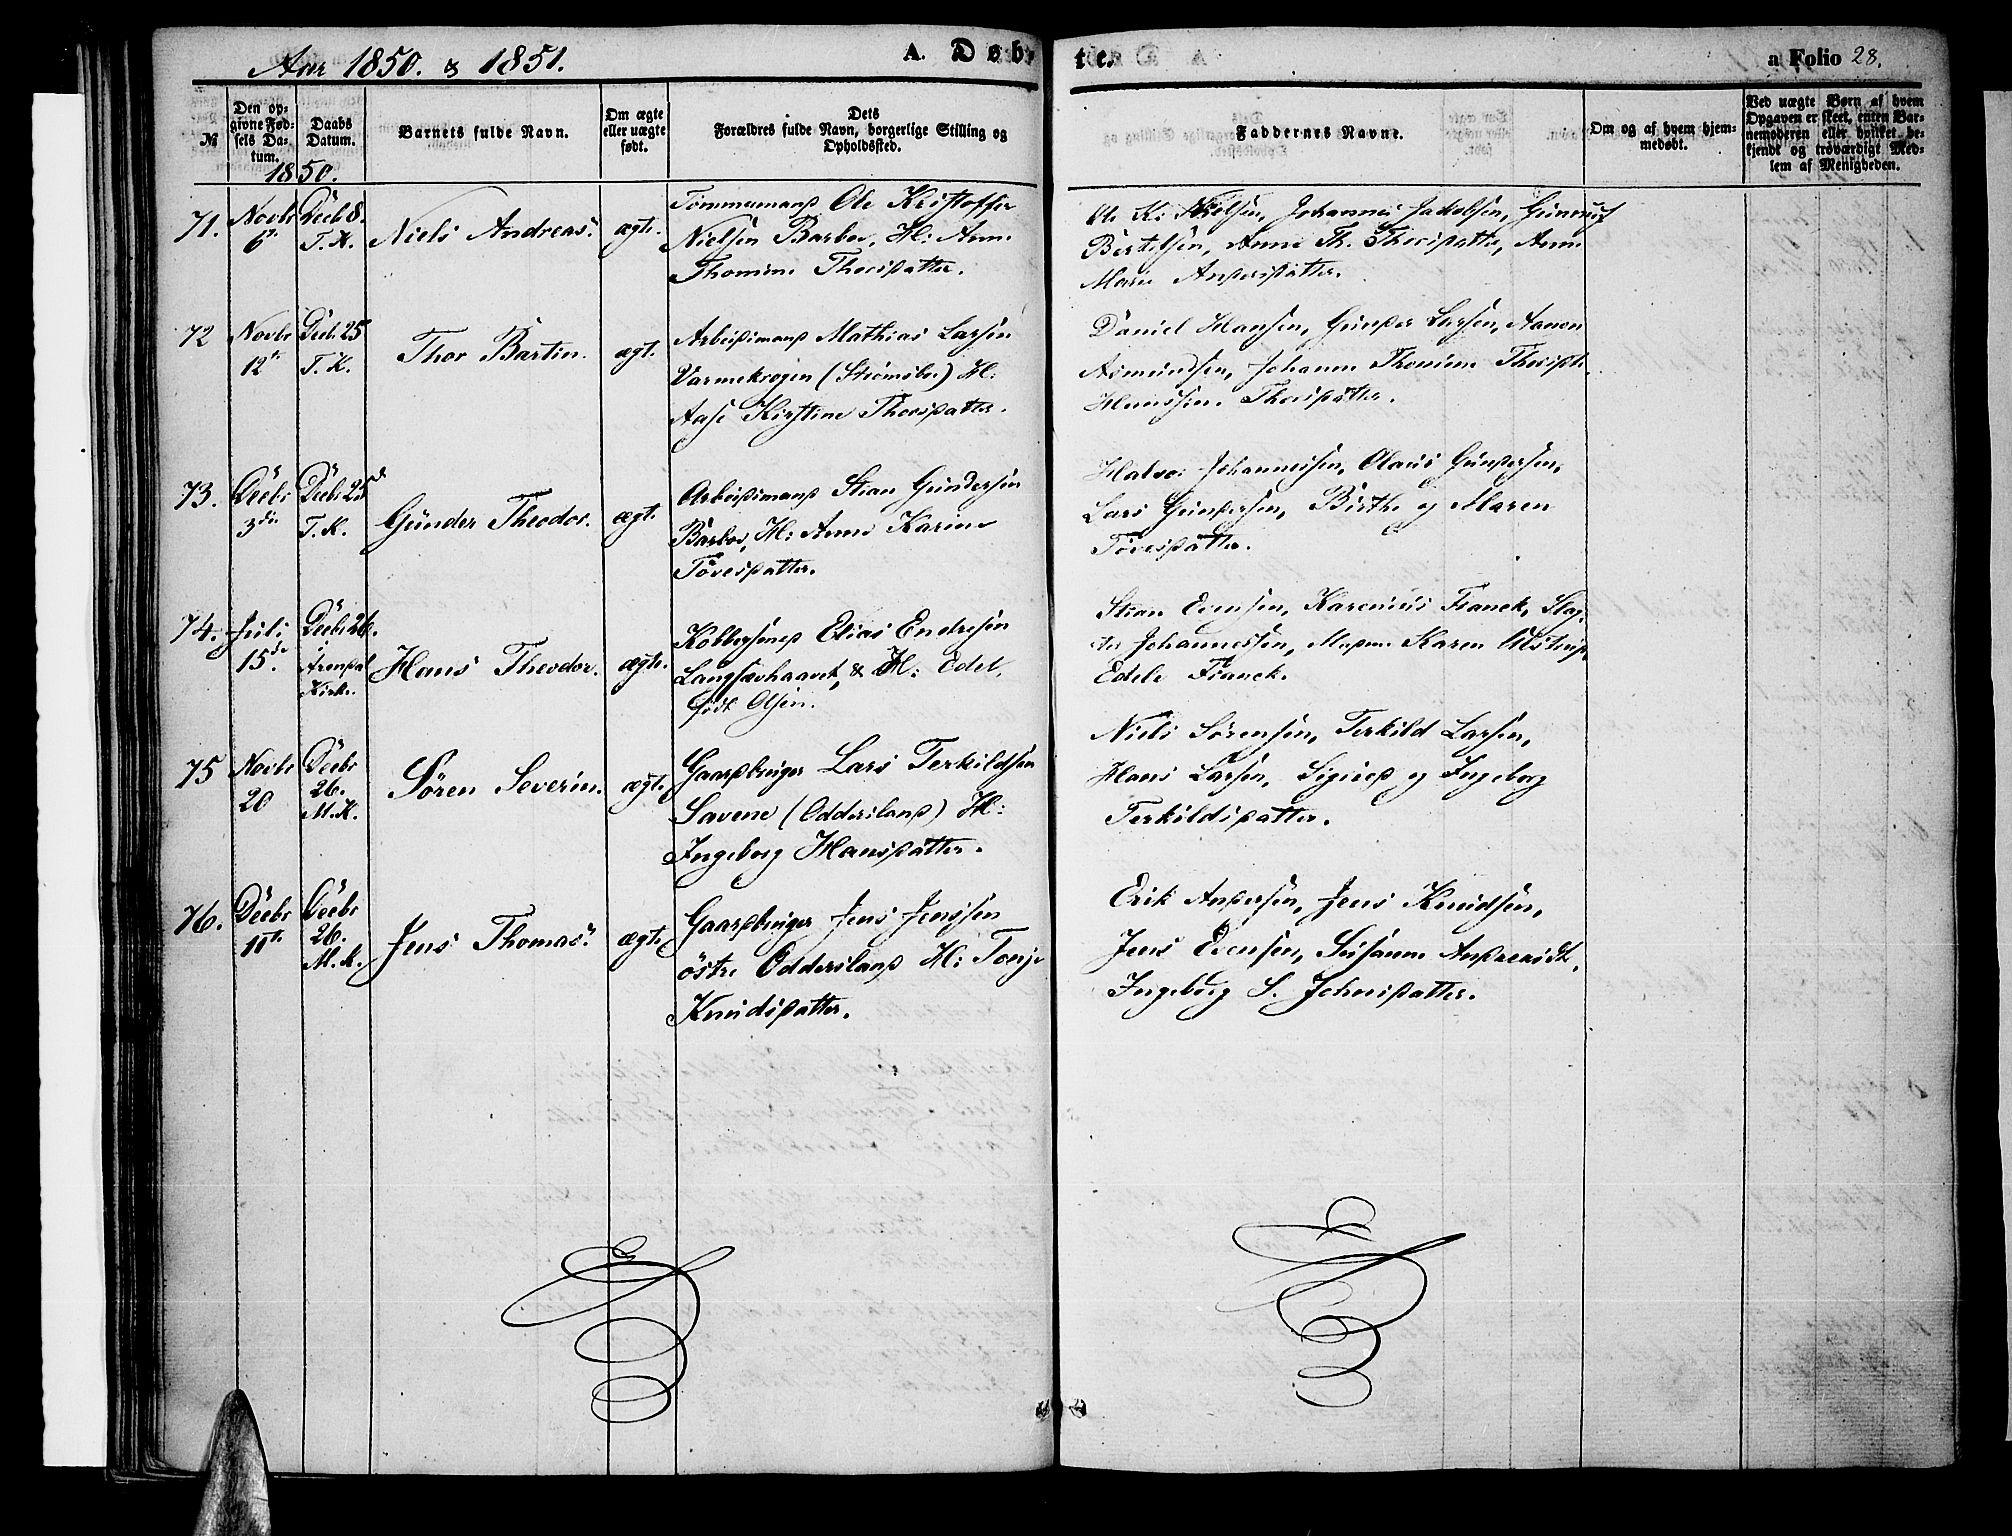 Aar 1850. & 1851.
A. Døb-
te.
a Folio 28.
№
Den op-
givne Fød-
sels Da-
tum.
Daabs
Datum.
Barnets fulde Navn.
Om ægte
eller uægte
født.
Dets
Forældres fulde Navn, borgerlige Stilling og
Opholdssted.
Faddernes Navne.
Om og af hvem hjem-
medøbt.
Ved uægte Børn af hvem
Opgaven er skeet, enten Bar-
nemoderen eller hvilket be-
kjendt og troværdigt Med-
lem af Menigheden.
1850.
71.
Novbr
6te
Decb 8.
T. K.
Niels Andreas.
ægte.
Tømmermand Ole Kristoffer
Nielsen Barbo, H: Anne
Thomine Thorsdatter.
Ole Kr Nielsen, Johannes Jakobsen, Gunnuf
Bertelsen, Anne Th. Thorsdatter, Anne
Marie Andersdatter.
72
Novbr
12te
Decb 25
T. K.
Thor Bartin.
ægt.
Arbeidsmand Mathias Larsen
Varmekrogen (Strømsbo) H:
Aase Kirstine Thorsdatter.
Daniel Hansen, Gunder Larsen, Aanon
Asmundsen, Johanne Thomine Thorsdtr.
Thorsdatter.
73.
Decbr
3die
Decbr 25de
T. K.
Gunder Theodor.
ægt.
Arbeidsmand Stian Gundersen
Barbo, H: Anne Karine
Tovesdatter.
Halvor Johannessen, Olaus Gundersen,
Lars Gundersen, Birthe og Maren
Tovesdatter.
74.
Juli
15de
Decbr 26.
i
Arendal
Kirke.
Hans Theodor.
ægte.
Kobbersmed Elias Endresen
Langsævhaavet, & H: Edel,
født Olsen.
Stian Evensen, Karenius Franck,
Johannessen, Madme Karen
Edele Franck.
75
Novbr
20
Decbr
26.
M. K.
Søren Severin.
ægt.
Gaardbruger Lars Terkildsen
Savene (Oddersland) H:
Ingeborg Hansdatter.
Niels Sørensen, Terkild Larsen,
Hans Larsen, Sigrid og Ingeborg
Terkildsdatter.
76.
Decbr
11te
Decbr
26.
M. K.
Jens Thomas.
ægte
Gaardbruger Jens Jenssen
østre Oddersland H: Tonje
Knudsdatter.
Erik Andersen, Jens Knudsen,
Jens Evensen, Susanne Andreasdt.
Ingeborg S. Johnsdatter.